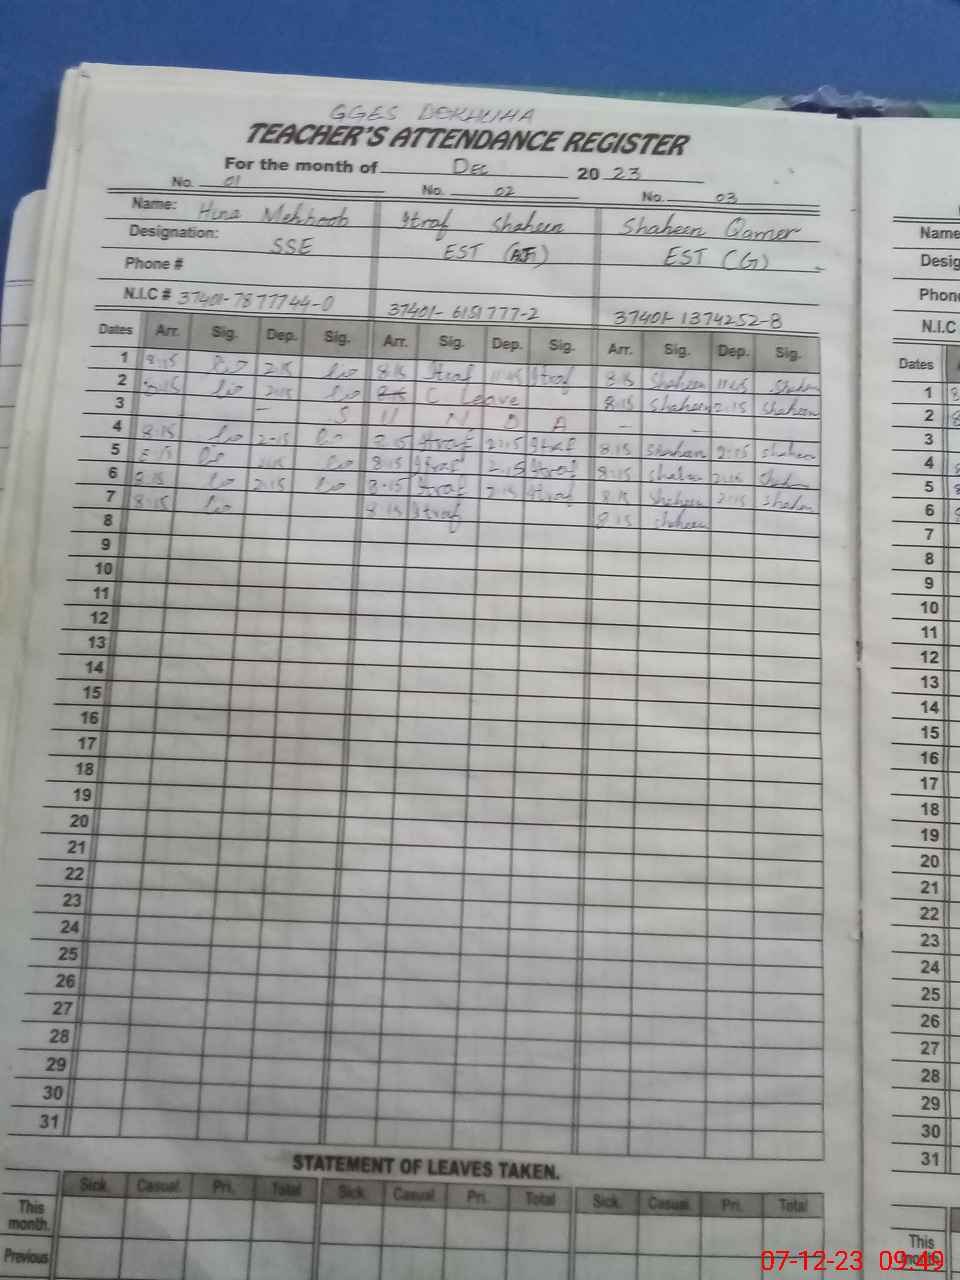 GGES DEKHUHA
TEACHER'S ATTENDANCE REGISTER
For the month of Dec 2023
No. 01 No. 02 No. 03
Name: Hina Mehboob Itraf Shaheen Shaheen Qamer
Designation: SSE EST (AT) EST (G)
Phone #
N.I.C # 37401-7877744-0 37401-6151777-2 37401-1374252-8
Dates Arr. Sig. Dep. Sig. Arr. Sig. Dep. Sig. Arr. Sig. Dep. Sig.
1 8:15 2:15 8:15 Itraf 11:45 Itraf 8:15 Shaheen 11:45 Shaheen
2 8:15 2:15 C Leave 8:15 Shaheen 2:15 Shaheen
3 — S U N D A — —
4 8:15 2:15 8:15 Itraf 2:15 Itraf 8:15 Shaheen 2:15 Shaheen
5 8:15 2:15 8:15 Itraf 2:15 Itraf 8:15 Shaheen 2:15 Shaheen
6 8:15 2:15 8:15 Itraf 2:15 Itraf 8:15 Shaheen 2:15 Shaheen
7 8:15 8:15 Itraf 8:15 Shaheen
8
9
10
11
12
13
14
15
16
17
18
19
20
21
22
23
24
25
26
27
28
29
30
31
STATEMENT OF LEAVES TAKEN.
Sick. Casual. Pri. Total Sick. Casual. Pri. Total Sick. Casual. Pri. Total
This month.
Previous
Name
Desig
Phon
N.I.C
Dates
1 8
2
3
4
5
6
7
8
9
10
11
12
13
14
15
16
17
18
19
20
21
22
23
24
25
26
27
28
29
30
31
This
month.
07-12-23 09:49